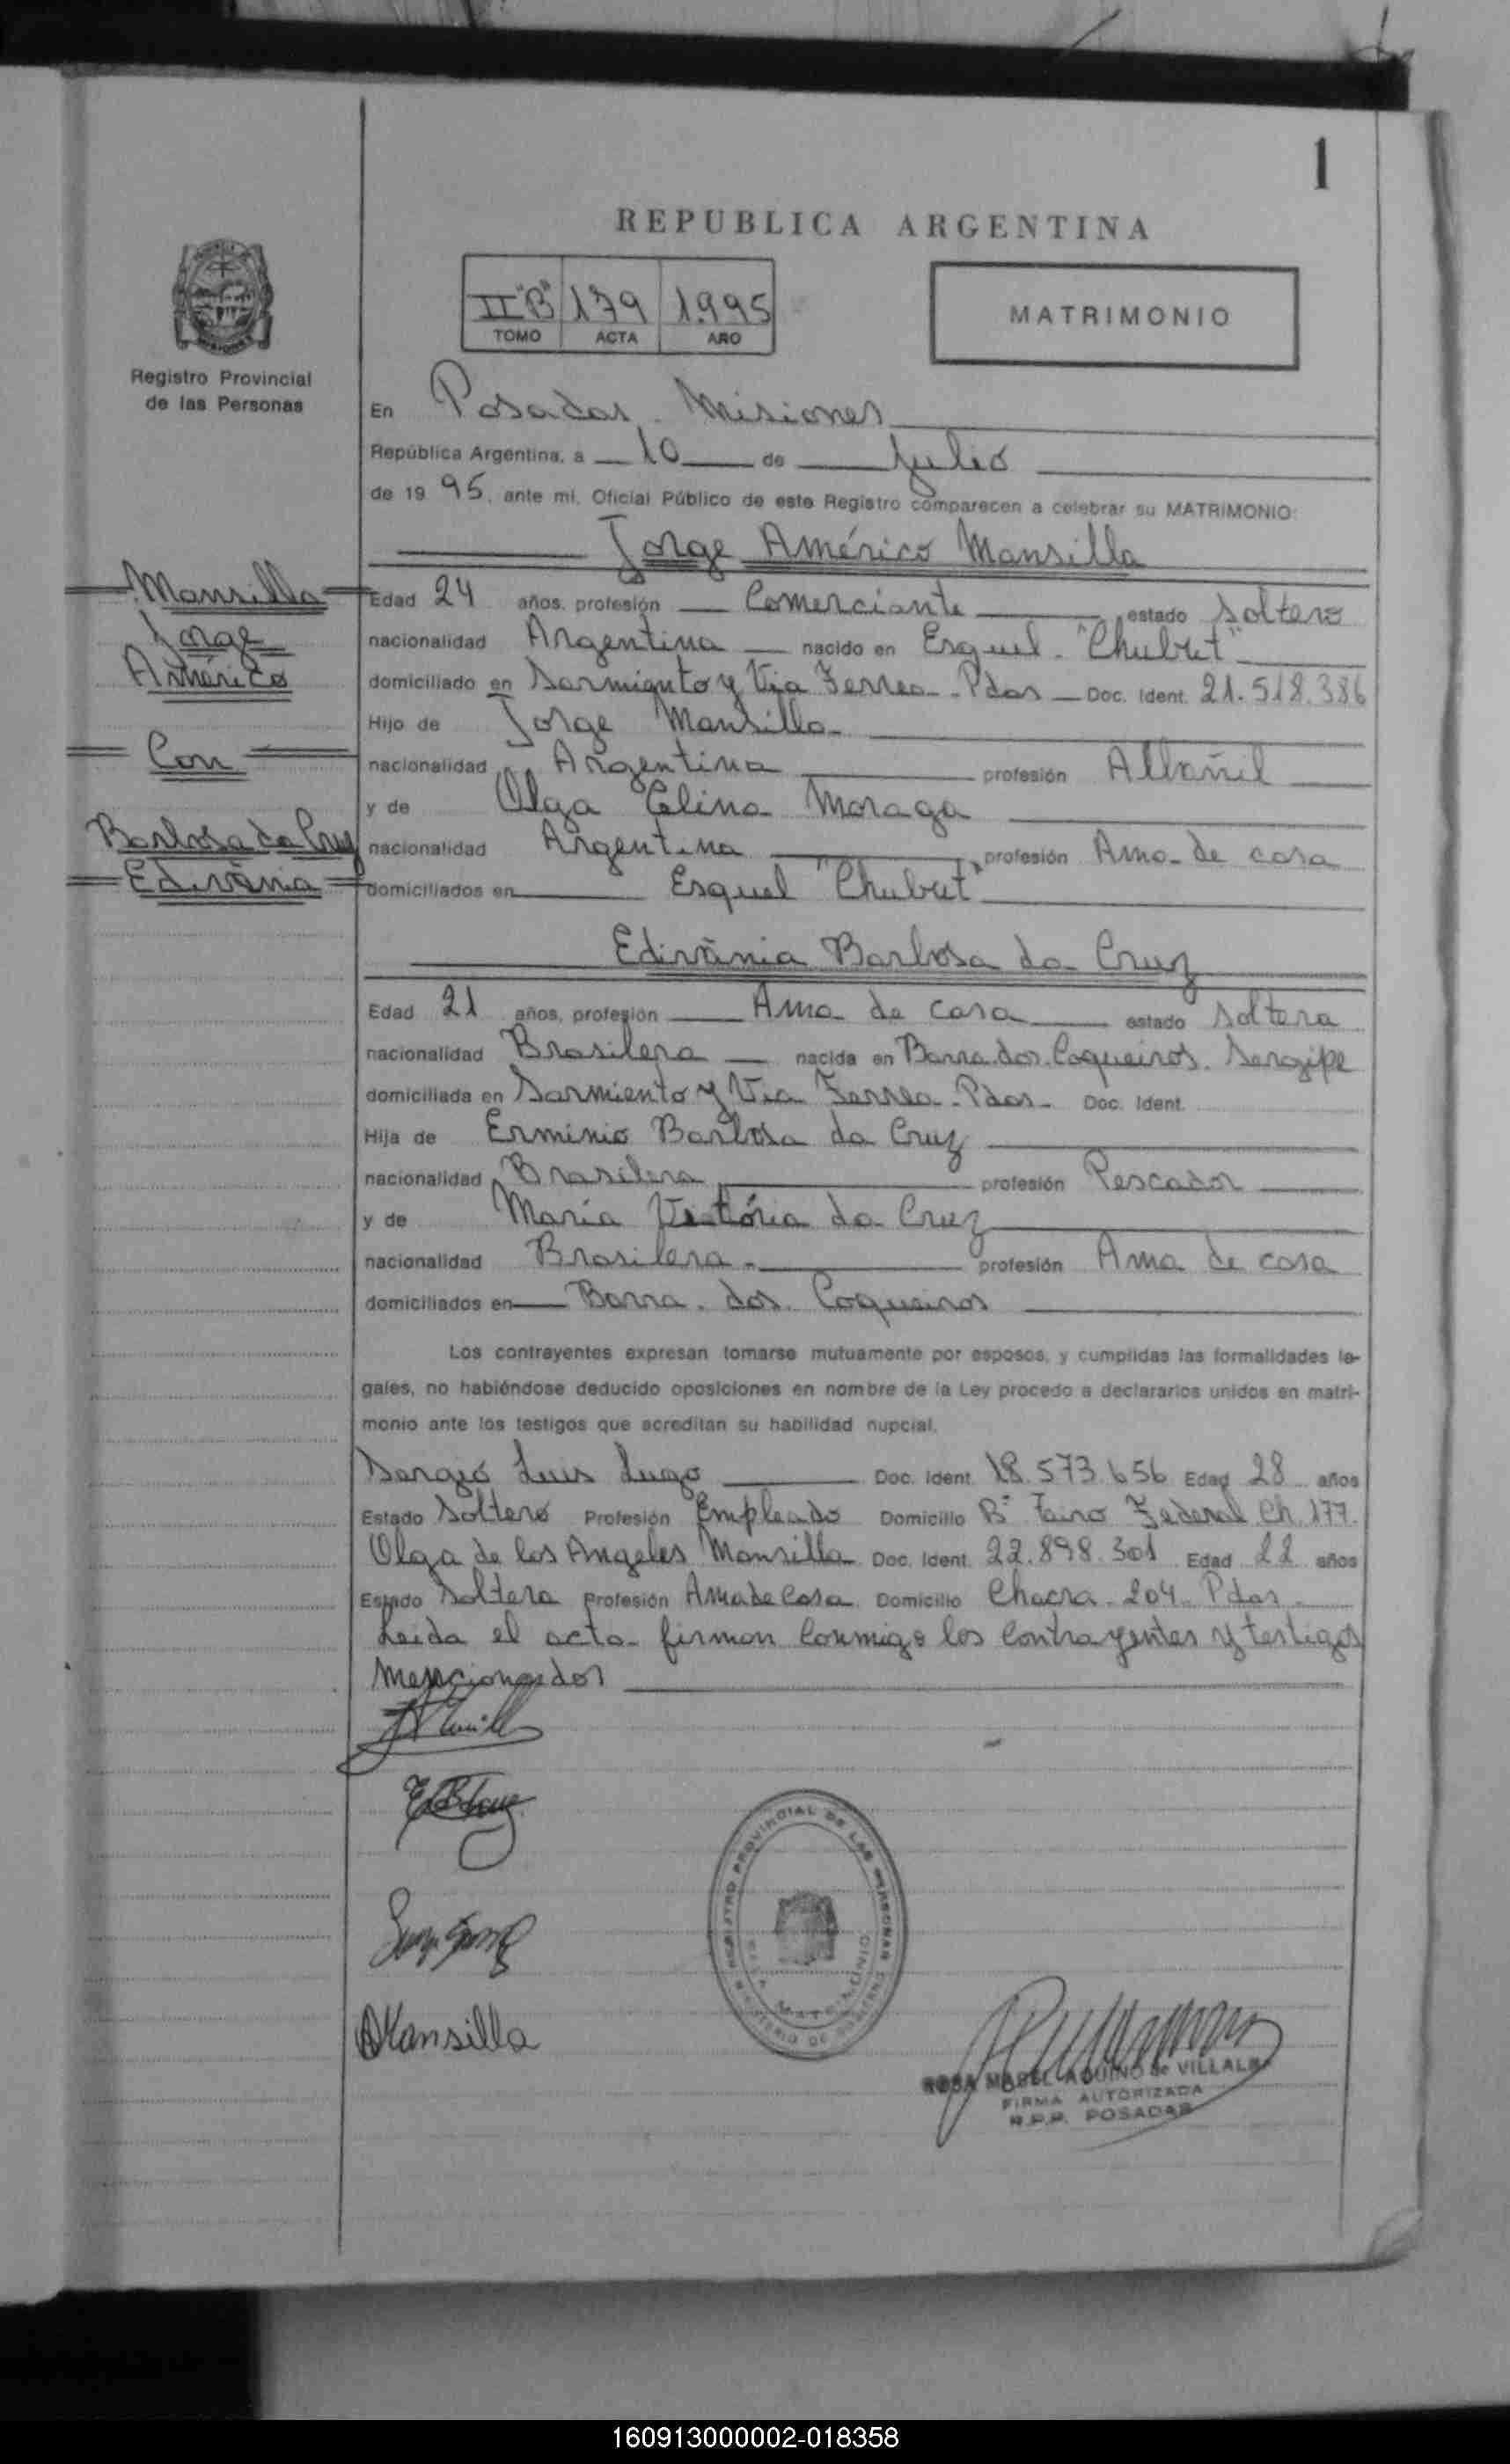 1
REPUBLICA ARGENTINA
II"B" 179 1995
TOMO ACTA AÑO
MATRIMONIO
Registro Provincial
de las Personas
En Posadas - Misiones
República Argentina, a 10 de Julio
de 19 95, ante mí, Oficial Público de este Registro comparecen a celebrar su MATRIMONIO:
Jorge Américo Mansilla
Mansilla
Jorge
Américo
Con
Barbosa da Cruz
Edivânia
Edad 24 años, profesión Comerciante estado Soltero
nacionalidad Argentina nacido en Esquel - "Chubut"
domiciliado en Sarmiento y Via Ferrea - Pdas - Doc. Ident. 21.518.386
Hijo de Jorge Mansilla
nacionalidad Argentina profesión Albañil
y de Olga Celina Moraga
nacionalidad Argentina profesión Ama de casa
domiciliados en Esquel "Chubut"
Edivânia Barbosa da Cruz
Edad 21 años, profesión Ama de casa estado Soltera
nacionalidad Brasilera nacida en Barra dos Coqueiros. Sergipe
domiciliada en Sarmiento y Via Ferrea - Pdas - Doc. Ident.
Hija de Erminio Barbosa da Cruz
nacionalidad Brasilera profesión Pescador
y de María Victória da Cruz
nacionalidad Brasilera - profesión Ama de casa
domiciliados en Barra dos Coqueiros
Los contrayentes expresan tomarse mutuamente por esposos, y cumplidas las formalidades le-
gales, no habiéndose deducido oposiciones en nombre de la Ley procedo a declararlos unidos en matri-
monio ante los testigos que acreditan su habilidad nupcial.
Sergio Luis Lugo Doc. Ident. 18.573.656 Edad 28 años
Estado Soltero Profesión Empleado Domicilio Bº Federal Ch. 177.
Olga de los Angeles Mansilla Doc. Ident. 22.898.301 Edad 22 años
Estado Soltera Profesión Ama de Casa Domicilio Chacra 204 Pdas
Leida el acta firman conmigo los contrayentes y testigos
mencionados
REGISTRO PROVINCIAL DE LAS PERSONAS
MINISTERIO DE GOBIERNO
MATRIMONIO
Mansilla
ROSA MABEL AQUINO de VILLALBA
FIRMA AUTORIZADA
R.P.P. POSADAS
160913000002-018358